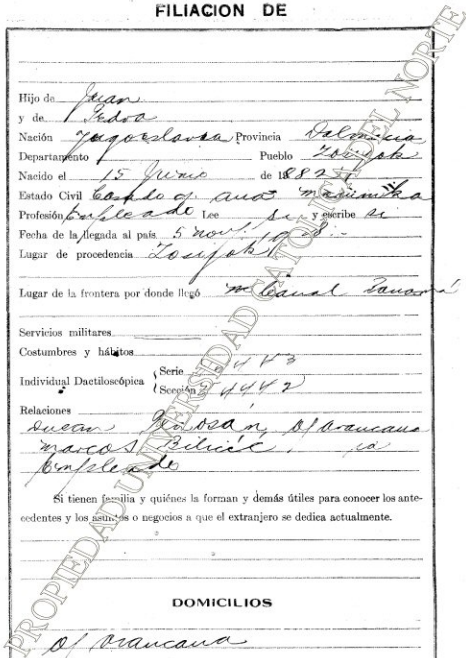 FILIACION DE
Hijo de Juan
y de Pedra
Nación Jugoeslavia Provincia Dalmacia
Departamento Pueblo
Nacido el 15 Junio de 1882
Estado Civil Casado
Profesión Empleado Lee si y escribe si
Fecha de la llegada al país 5 nov.
Lugar de procedencia
Lugar de la frontera por donde llegó Canal Panamá
Servicios militares
Costumbres y hábitos
Individual Dactiloscópica
Serie
Sección
Relaciones
Of Araucana
Marcos
Empleado
Si tienen familia y quiénes la forman y demás útiles para conocer los ante-
cedentes y los asuntos o negocios a que el extranjero se dedica actualmente.
DOMICILIOS
Of Araucana
PROPIEDAD UNIVERSIDAD CATOLICA DEL NORTE